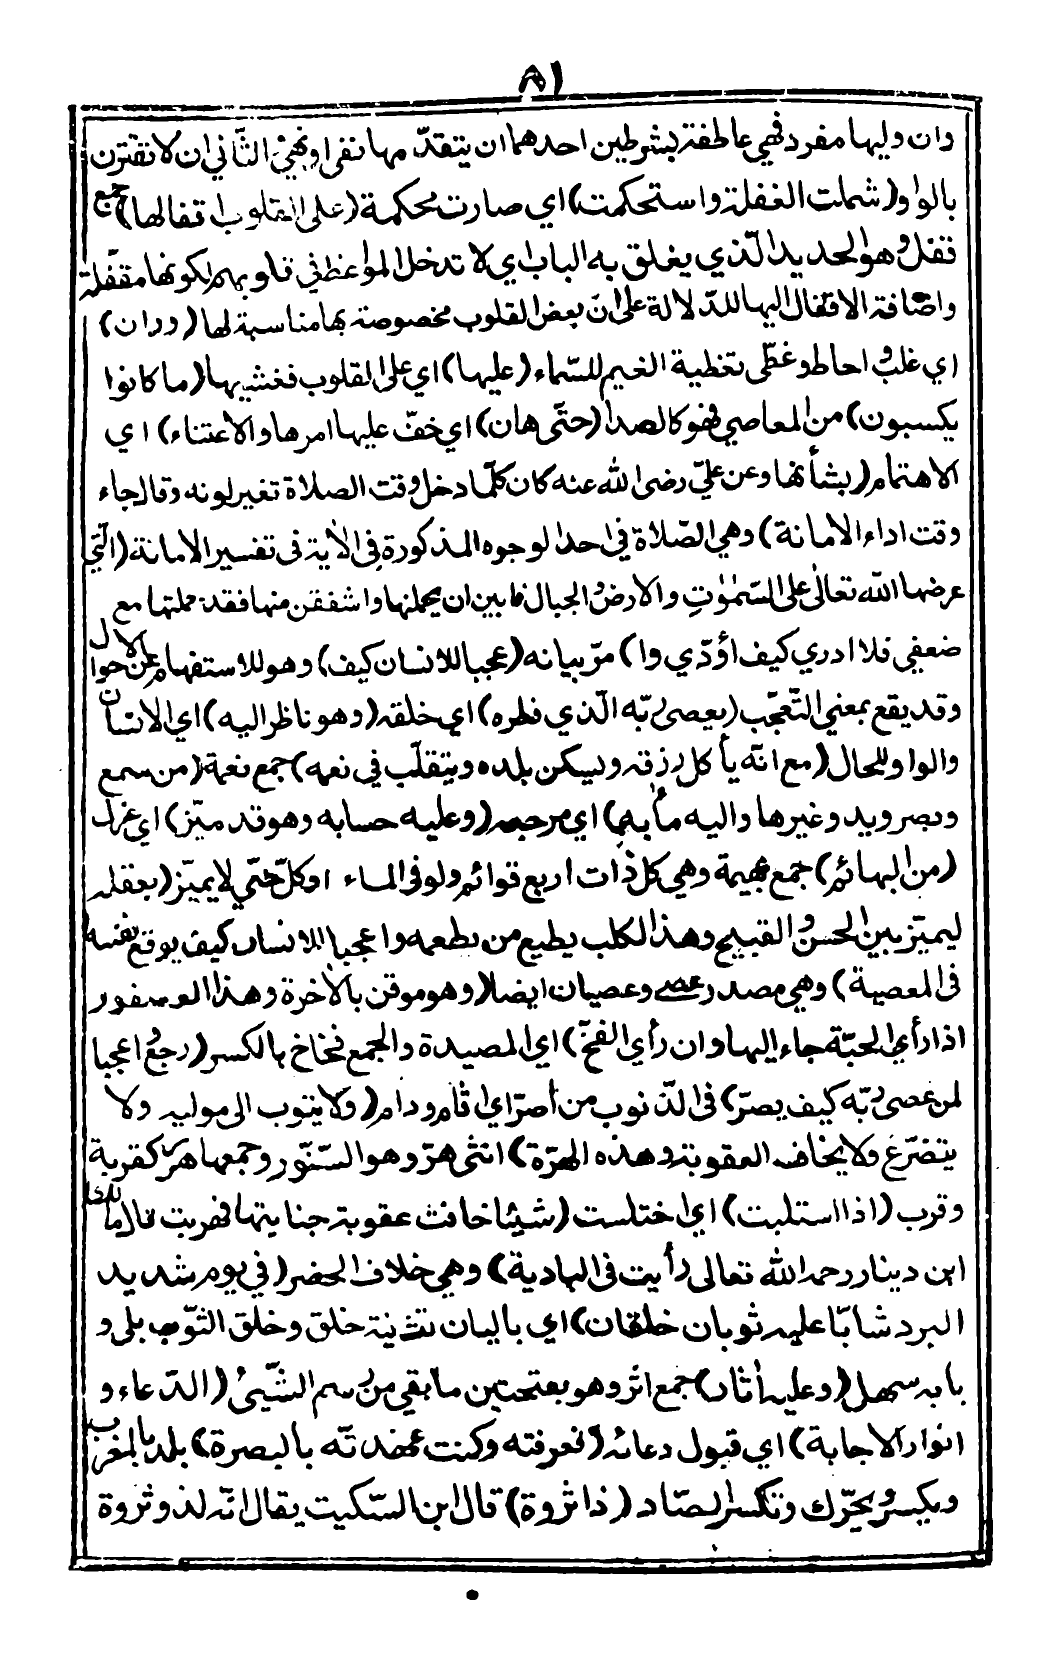 ٥٨١
وان وليها مفرد فهي عاطفة بشرطين احدهما ان يتقدّمها نفي او نهي الثّاني ان لا تقترن
بالواو (شملت الغفلة واستحكمت) اي صارت محكمة (على القلوب اقفالها) جمع
قفل وهو الحديد الّذي يغلق به الباب اي لا تدخل المواعظ في قلوبهم لكونها مقفّلة
واضافة الاقفال اليها للدّلالة على انّ بعض القلوب مخصوصة بها مناسبة لها (وران)
اي غلب واحاط وغطّى تغطية الغيم للسّماء (عليها) اي على القلوب فغشيها (ما كانوا
يكسبون) من المعاصي فهو كالصدا (حتّى هان) اي خفّ عليها امرها والاعتناء) اي
الاهتمام (بشأنها وعن عليّ رضى الله عنه كان كلّما دخل وقت الصلاة تغير لونه وقال جاء
وقت اداء الامانة) وهي الصّلاة في احد الوجوه المذكورة في الأية فى تفسير الامانة (الّتي
عرضها الله تعالى على السّمٰوٰت والارض والجبال فابين ان يحملنها واشفقن منها فقد حملتها مع
ضعفي فلا ادري كيف أؤدّي وا) مرّ بيانه (عجبا للانسان كيف) وهو للاستفهام عن الاحوال
وقد يقع بمعنى التّعجّب (يعصى ربّه الّذي فطره) اي خلقه (وهو ناظر اليه) اي الانسان
والواو للحال (مع انّه يأكل رزقه ويسكن بلده ويتقلّب في نعمه) جمع نعمة (من سمع
وبصر ويد وغيرها واليه مأبه) اي مرجعه (وعليه حسابه وهو قد ميّز) اي عزل
(من البهائم) جمع بهيمة وهي كل ذات اربع قوائم ولو فى الماء او كلّ حيّ لا يميّز (بعقله
ليميّز بين الحسن والقبيح وهذا الكلب يطيع من يطعمه واعجبا للانسان كيف يوقع نفسه
فى المعصية) وهي مصدر عصى وعصيان ايضا (وهو موقن بالأخرة وهذا العصفور
اذا رأي الحبّة جاء اليها وان رأي الفخّ) اي المصيدة والجمع فخاخ بالكسر (رجع واعجبا
لمن عصى ربّه كيف يصرّ) فى الذّنوب من أصرّ اي اقام ودام (ولا يتوب الى موليه ولا
يتضرّع ولا يخاف العقوبة وهذه الهرّة) انثى هرّ وهو السّنّور وجمعها هرر كقربة
وقرب (اذا استلبت) اي اختلست (شيئا خافت عقوبة جنايتها فهربت قال مالك
ابن دينار رحمه الله تعالى رأيت فى البادية) وهي خلاف الحضر (في يوم شديد
البرد شابّا عليه ثوبان خلقان) اي باليان تثنية خلق وخلق الثّوب بلى و
بابه سهل (وعليه أثار) جمع اثر وهو بفتحتين ما بقي من رسم الشّيئ (الدّعاء و
انوار الاجابة) اي قبول دعائه (فعرفته وكنت عهدته بالبصرة) بلد بالمغرب
ويكسر ويحرّك وتكسر الصّاد (ذا ثروة) قال ابن السّكيت يقال انّه لذو ثروة